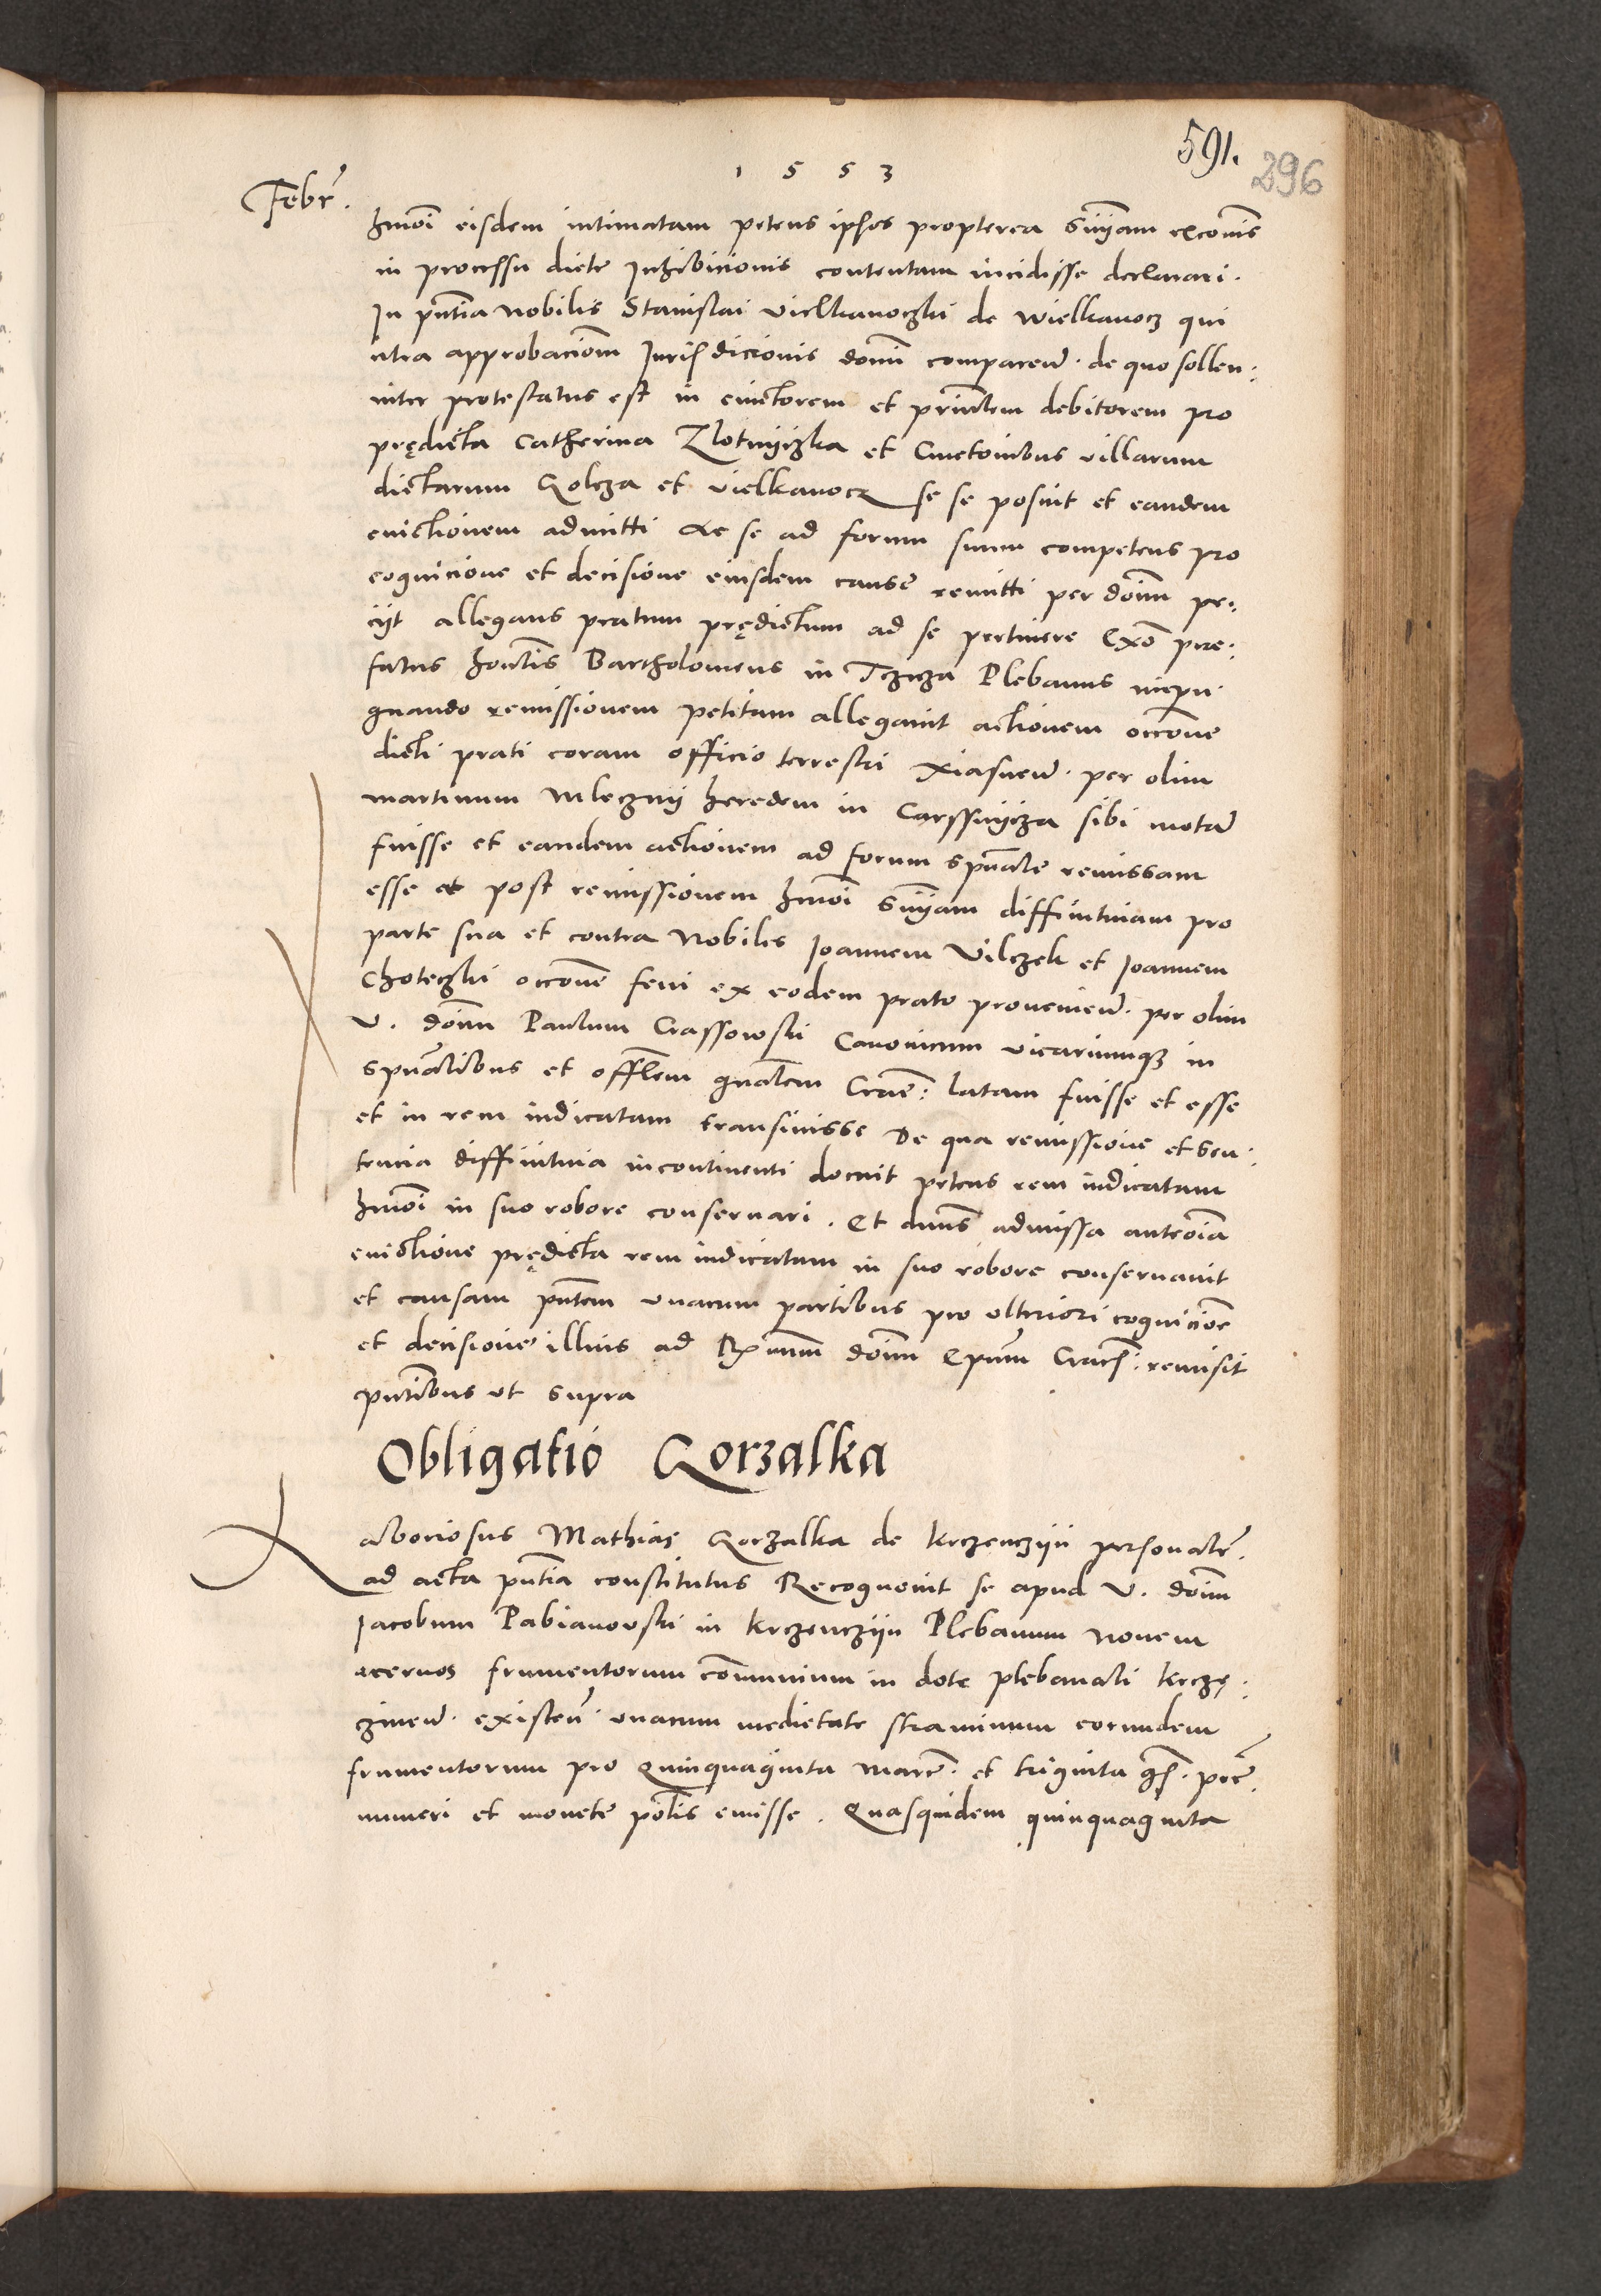 591.
296
1 5 5 3
Febr̃.
hmõi eisdem intimatam petens ipsos propterea sn̄yam excõnis
in processu dictẹ Inhibicionis contentam incidisse declarari.
In pn̄tia Nobilis Stanislai Vielkanoczki de Wielkanocz qui
citra approbaciõm Jurisdicionis domī comparen̄. de quo sollen:
niter protestatus est in euictorem et prin̄clem debitorem pro
prędicta Catherina Zlotnyczka et Cmetonibus villarum
dictarum Golcza et Vielkanocz se se posuit et eandem
euictionem admitti Ac se ad forum suum competens pro
cognicione et decisione eiusdem causę remitti per dōnm pe:
ciit allegans pratum prędictum ad se pertinere Exo pre:
fatus hon̄lis Bartholomeus in Tczicza Plebanus impu:
gnando remissionem petitam allegauit actionem occõne
dicti prati coram officio terrestri Xiasnen̄. per olim
martinum Mlecznij heredem in Carssnycza sibi motā
fuisse et eandem actionem ad forum spūale remissam
esse et post remissionem hmõi sn̄yam diffinitiuam pro
parte sua et contra Nobiles Joannem Vilczek et Joannem
Choteczki occõne feni ex eodem prato prouenien̄. per olim
V. dōnm Paulum Crassowski Canonicum vicariumq3 in
spūalibus et offlem gn̄alem Crac̄: latam fuisse et esse
et in rem iudicatam transiuisse De qua remissione et sen:
tencia diffinitiua incontinenti docuit petens rem iudicatam
hmõi in suo robore conseruari. Et dnus̄ admissa anteoīa
euictione prędicta rem iudicatam in suo robore conseruauit
et causam pn̄tem vnacum partibus pro vlteriori cognicioē
et decisione illius ad Rx̄mum dōnm Epūm Cracn̄: remisit
pn̄tibus vt supra
Obligatio Gorzalka
Laboriosus Mathias Gorzalka de Krczenczijn personalr̄.
ad acta pn̄tia constitutus Recognouit se apud V. dōnm
Jacobum Pabianowski in Krczenczijn Plebanum nouem
aceruos frumentorum cōmunium in dote plebanali Krczę:
czinen̄. existen̄. vnacum medietate straminum eorundem
frumentorum pro Quinquaginta marc̄. et triginta gs̄. pec̄.
numeri et monetẹ pōlis emisse. Quasquidem quinquaginta